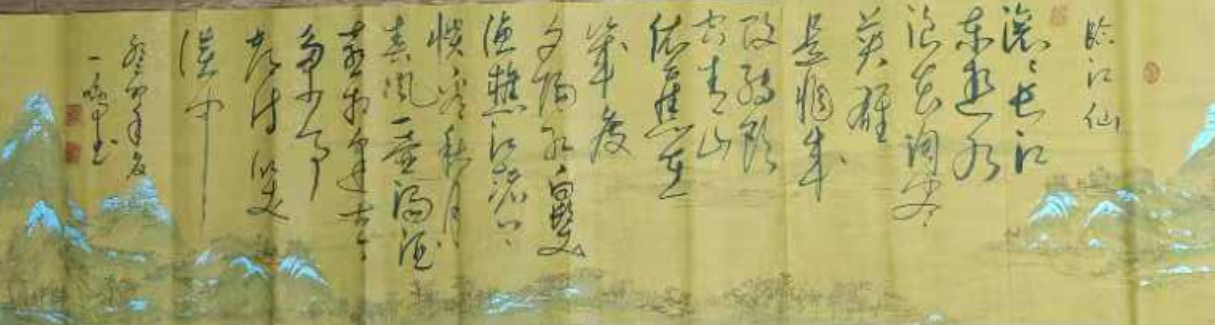 临江仙
滚滚长江
东逝水
浪花淘尽
英雄
是非成
败转头
空青山
依旧在
几度
夕阳红白髮
渔樵江渚上
惯看秋月
春风一壶浊酒
喜相逢古今
多少事
都付笑
谈中
癸卯年夏
一鸣书